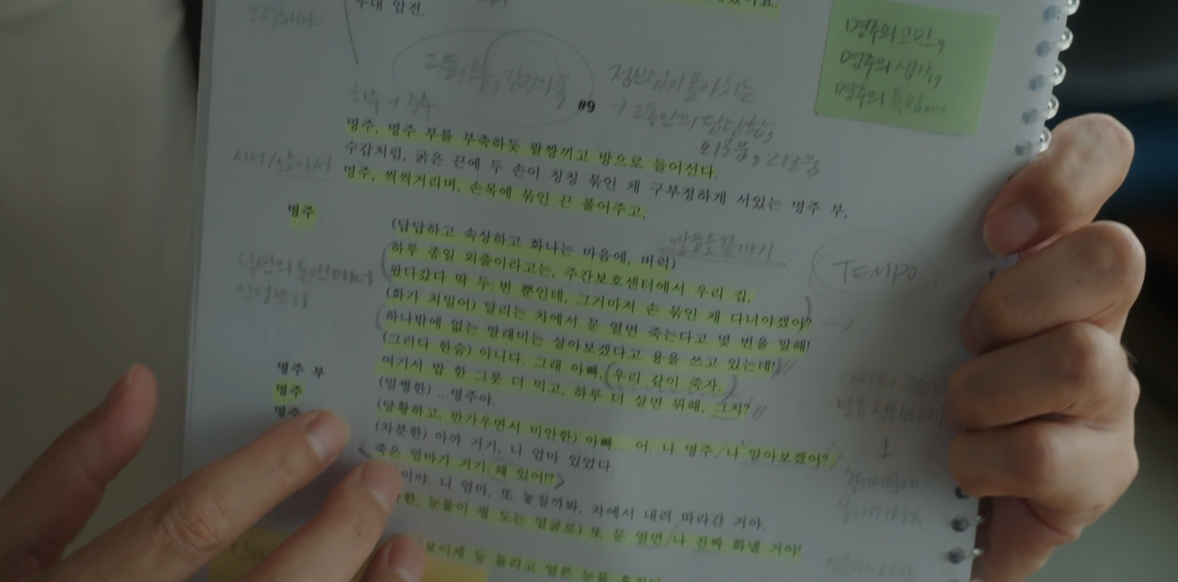 무대 암전.
명주의 고민,
명주의 생각,
명주의
#9
정신없이 몰아치는
→ 그동안의 답답함,
외로움, 괴로움
명주, 명주 부를 부축하듯 팔짱끼고 방으로 들어선다.
수갑처럼, 굵은 끈에 두 손이 칭칭 묶인 채 구부정하게 서있는 명주 부.
명주, 씩씩거리며, 손목에 묶인 끈 풀어주고,
명주
(답답하고 속상하고 화나는 마음에, 버럭)
하루 종일 외출이라고는, 주간보호센터에서 우리 집,
왔다갔다 딱 두 번 뿐인데, 그거마저 손 묶인 채 다녀야겠어?
TEMPO
(화가 치밀어) 달리는 차에서 문 열면 죽는다고 몇 번을 말해!
하나밖에 없는 딸래미는 살아보겠다고 용을 쓰고 있는데!
(그러다 한숨) 아니다. 그래 아빠, 우리 같이 죽자.
여기서 밥 한 그릇 더 먹고, 하루 더 살면 뭐해, 그치?
명주 부
(멀쩡한) ...명주야.
명주
(당황하고, 반가우면서 미안한) 아빠... 어, 나 명주, 나 알아보겠어?
(차분한) 아까 거기, 니 엄마 있었다.
명주
죽은 엄마가 거기 왜 있어!?
이야. 니 엄마, 또 놓칠까봐, 차에서 내려 따라간 거야.
눈물이 핑 도는 얼굴로) 또 문 열면 나 진짜 화낼 거야!
보이게 등 돌리고 얼른 눈물